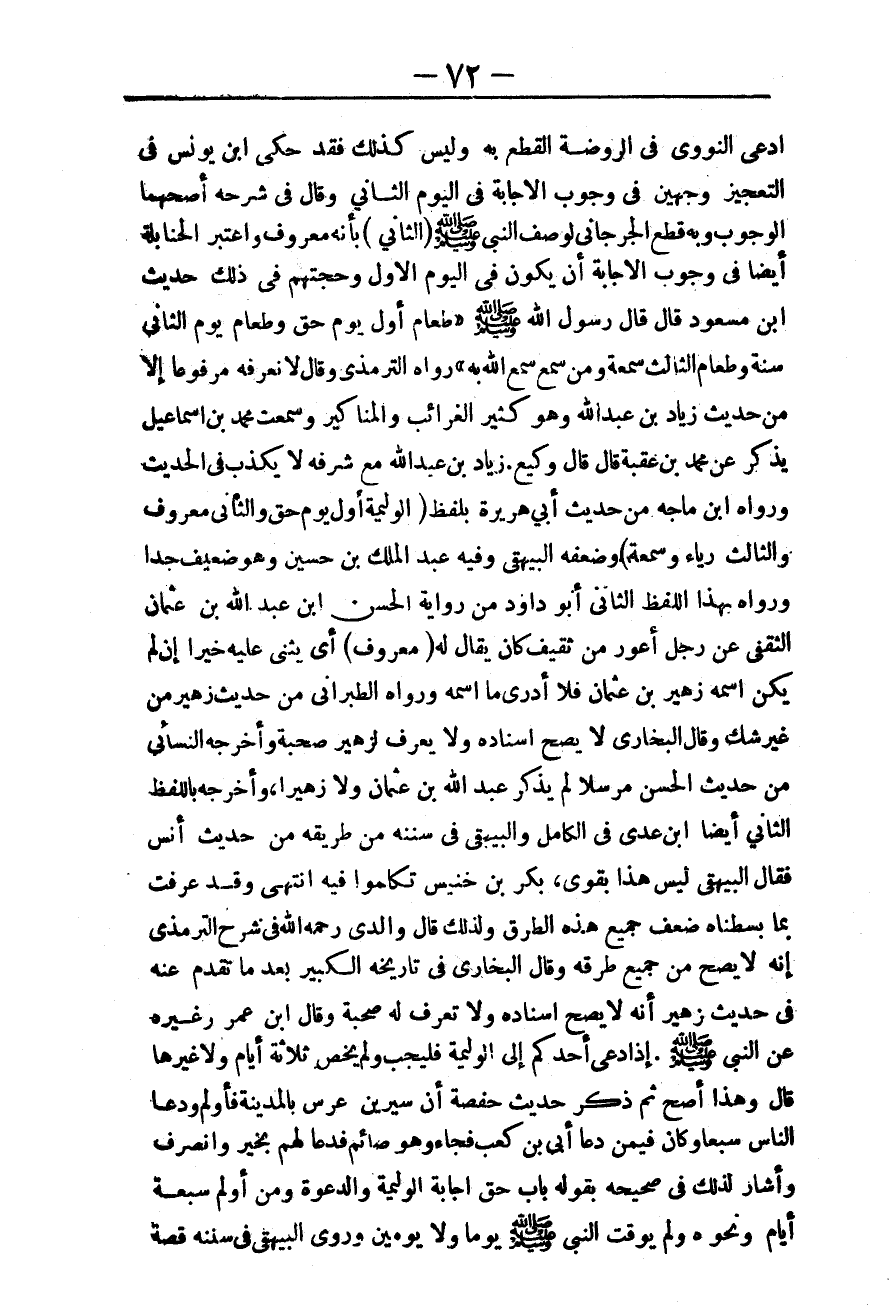 — ٧٢ —
ادعى النووى فى الروضة القطع به وليس كذلك فقد حكى ابن يونس فى
التعجيز وجهين فى وجوب الاجابة فى اليوم الثانى وقال فى شرحه أصحهما
الوجوب وبه قطع الجرجانى لوصف النبى ﷺ (الثانى) بأنه معروف واعتبر الحنابلة
أيضا فى وجوب الاجابة أن يكون فى اليوم الاول وحجتهم فى ذلك حديث
ابن مسعود قال قال رسول الله ﷺ «طعام أول يوم حق وطعام يوم الثانى
سنة وطعام الثالث سمعة ومن سمع سمع الله به» رواه الترمذى وقال لا نعرفه مرفوعا إلا
من حديث زياد بن عبد الله وهو كثير الغرائب والمناكير وسمعت محمد بن اسماعيل
يذكر عن محمد بن عقبة قال قال وكيع. زياد بن عبد الله مع شرفه لا يكذب فى الحديث
ورواه ابن ماجه من حديث أبي هريرة بلفظ ( الوليمة أول يوم حق والثانى معروف
والثالث رياء وسمعة) وضعفه البيهقى وفيه عبد الملك بن حسين وهو ضعيف جدا
ورواه بهذا اللفظ الثانى أبو داود من رواية الحسن ابن عبد الله بن عثمان
الثقفى عن رجل أعور من ثقيف كان يقال له ( معروف) أى يثنى عليه خيرا إن لم
يكن اسمه زهير بن عثمان فلا أدرى ما اسمه ورواه الطبرانى من حديث زهير من
غير شك وقال البخارى لا يصح اسناده ولا يعرف لزهير صحبة وأخرجه النسائي
من حديث الحسن مرسلا لم يذكر عبد الله بن عثمان ولا زهيرا، وأخرجه باللفظ
الثاني أيضا ابن عدى فى الكامل والبيهقى فى سننه من طريقه من حديث أنس
فقال البيهقى ليس هذا بقوى، بكر بن خنيس تكلموا فيه انتهى وقد عرفت
بما بسطناه ضعف جميع هذه الطرق ولذلك قال والدى رحمه الله فى شرح الترمذى
إنه لا يصح من جميع طرقه وقال البخارى فى تاريخه الكبير بعد ما تقدم عنه
فى حديث زهير أنه لا يصح اسناده ولا تعرف له صحبة وقال ابن عمر وغيره
عن النبى ﷺ . إذا دعى أحدكم إلى الوليمة فليجب ولم يخص ثلاثة أيام ولا غيرها
قال وهذا أصح ثم ذكر حديث حفصة أن سيرين عرس بالمدينة فأولم ودعا
الناس سبعا وكان فيمن دعا أبى بن كعب فجاء وهو صائم فدعا لهم بخير وانصرف
وأشار لذلك فى صحيحه بقوله باب حق اجابة الوليمة والدعوة ومن أولم سبعة
أيام ونحوه ولم يوقت النبى ﷺ يوما ولا يومين وروى البيهقى فى سننه قصة